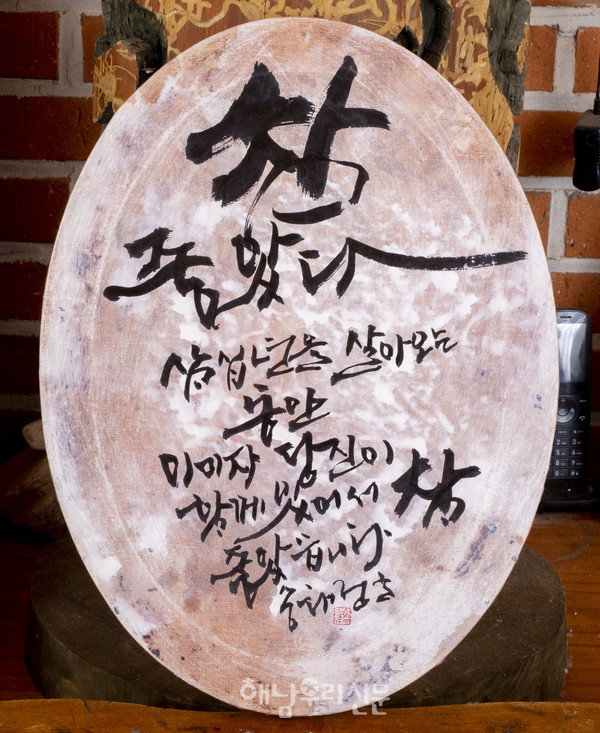 참
좋았다
삼십년을 살아오는
동안
이미자 당신이
함께 있어서 참
좋았습니다.
해남우리신문